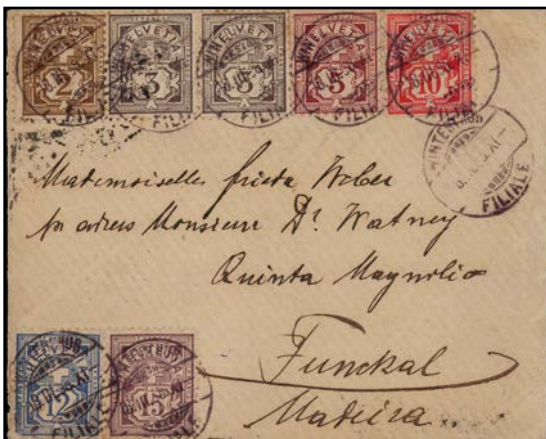 HELVETIA HELVETIA HELVETIA HELVETIA HELVETIA
2 3 3 5 10
WINTERTHUR
FILIALE
Mademoiselle Frieda Weber
pr adress Monsieur Dr. Watney
Quinta Magnolia
Funckal
Madeira
WINTERTHUR WINTERTHUR
12 15
FILIALE